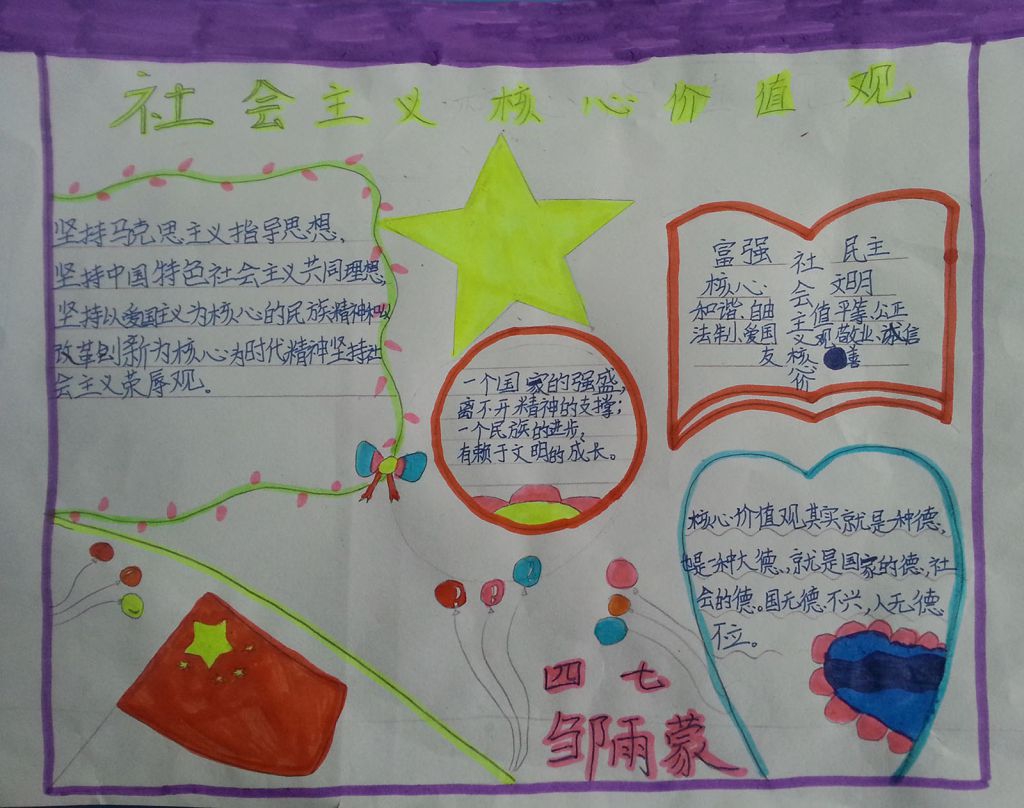 社会主义核心价值观
坚持马克思主义指导思想、
坚持中国特色社会主义共同理想,
坚持以爱国主义为核心的民族精神和以
改革创新为核心为时代精神坚持社
会主义荣辱观。
一个国家的强盛,
离不开精神的支撑;
一个民族的进步,
有赖于文明的成长。
富强 社 民主
核心 会 文明
和谐、自由 主 值 平等、公正
法制、爱国 义 观 敬业、诚信
友 核心 善
价
核心价值观其实就是一种德,
也是一种大德、就是国家的德、社
会的德。国无德不兴,人无德
不立。
四 七
邹雨蒙